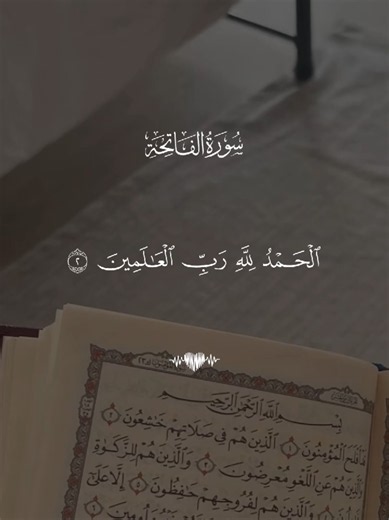 سُورَةُ الفَاتِحَةِ
ٱلْحَمْدُ لِلَّهِ رَبِّ ٱلْعَٰلَمِينَ ٢
بِسْمِ ٱللَّهِ ٱلرَّحْمَٰنِ ٱلرَّحِيمِ
قَدْ أَفْلَحَ ٱلْمُؤْمِنُونَ ١ ٱلَّذِينَ هُمْ فِي صَلَاتِهِمْ خَٰشِعُونَ ٢
وَٱلَّذِينَ هُمْ عَنِ ٱللَّغْوِ مُعْرِضُونَ ٣ وَٱلَّذِينَ هُمْ لِلزَّكَوٰةِ
وَٱلَّذِينَ هُمْ لِفُرُوجِهِمْ حَٰفِظُونَ ٥ إِلَّا عَلَىٰ